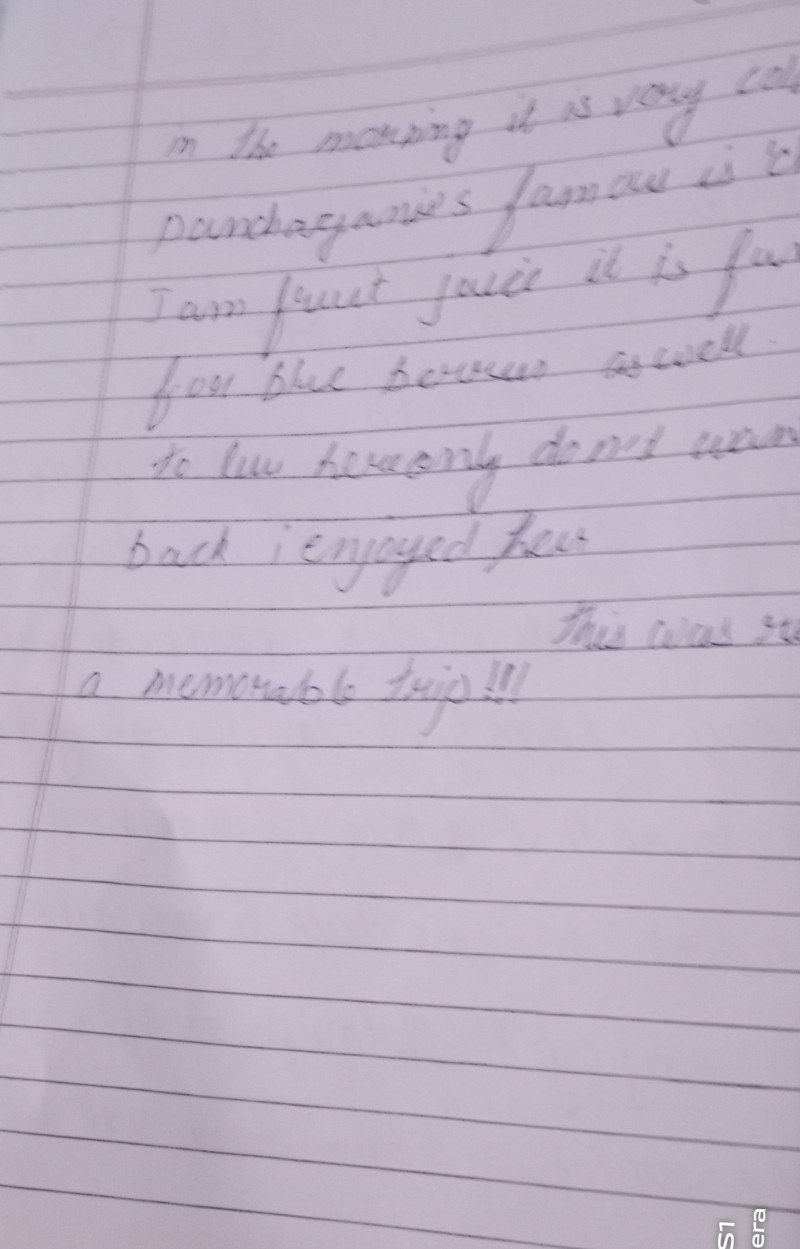 in the morning it is very
panchaganies famous is
Jam fruit juice it is
for blue berries as well
to live here only don't
back i enjoyed
This was
a memorable trip!!!
S1
era